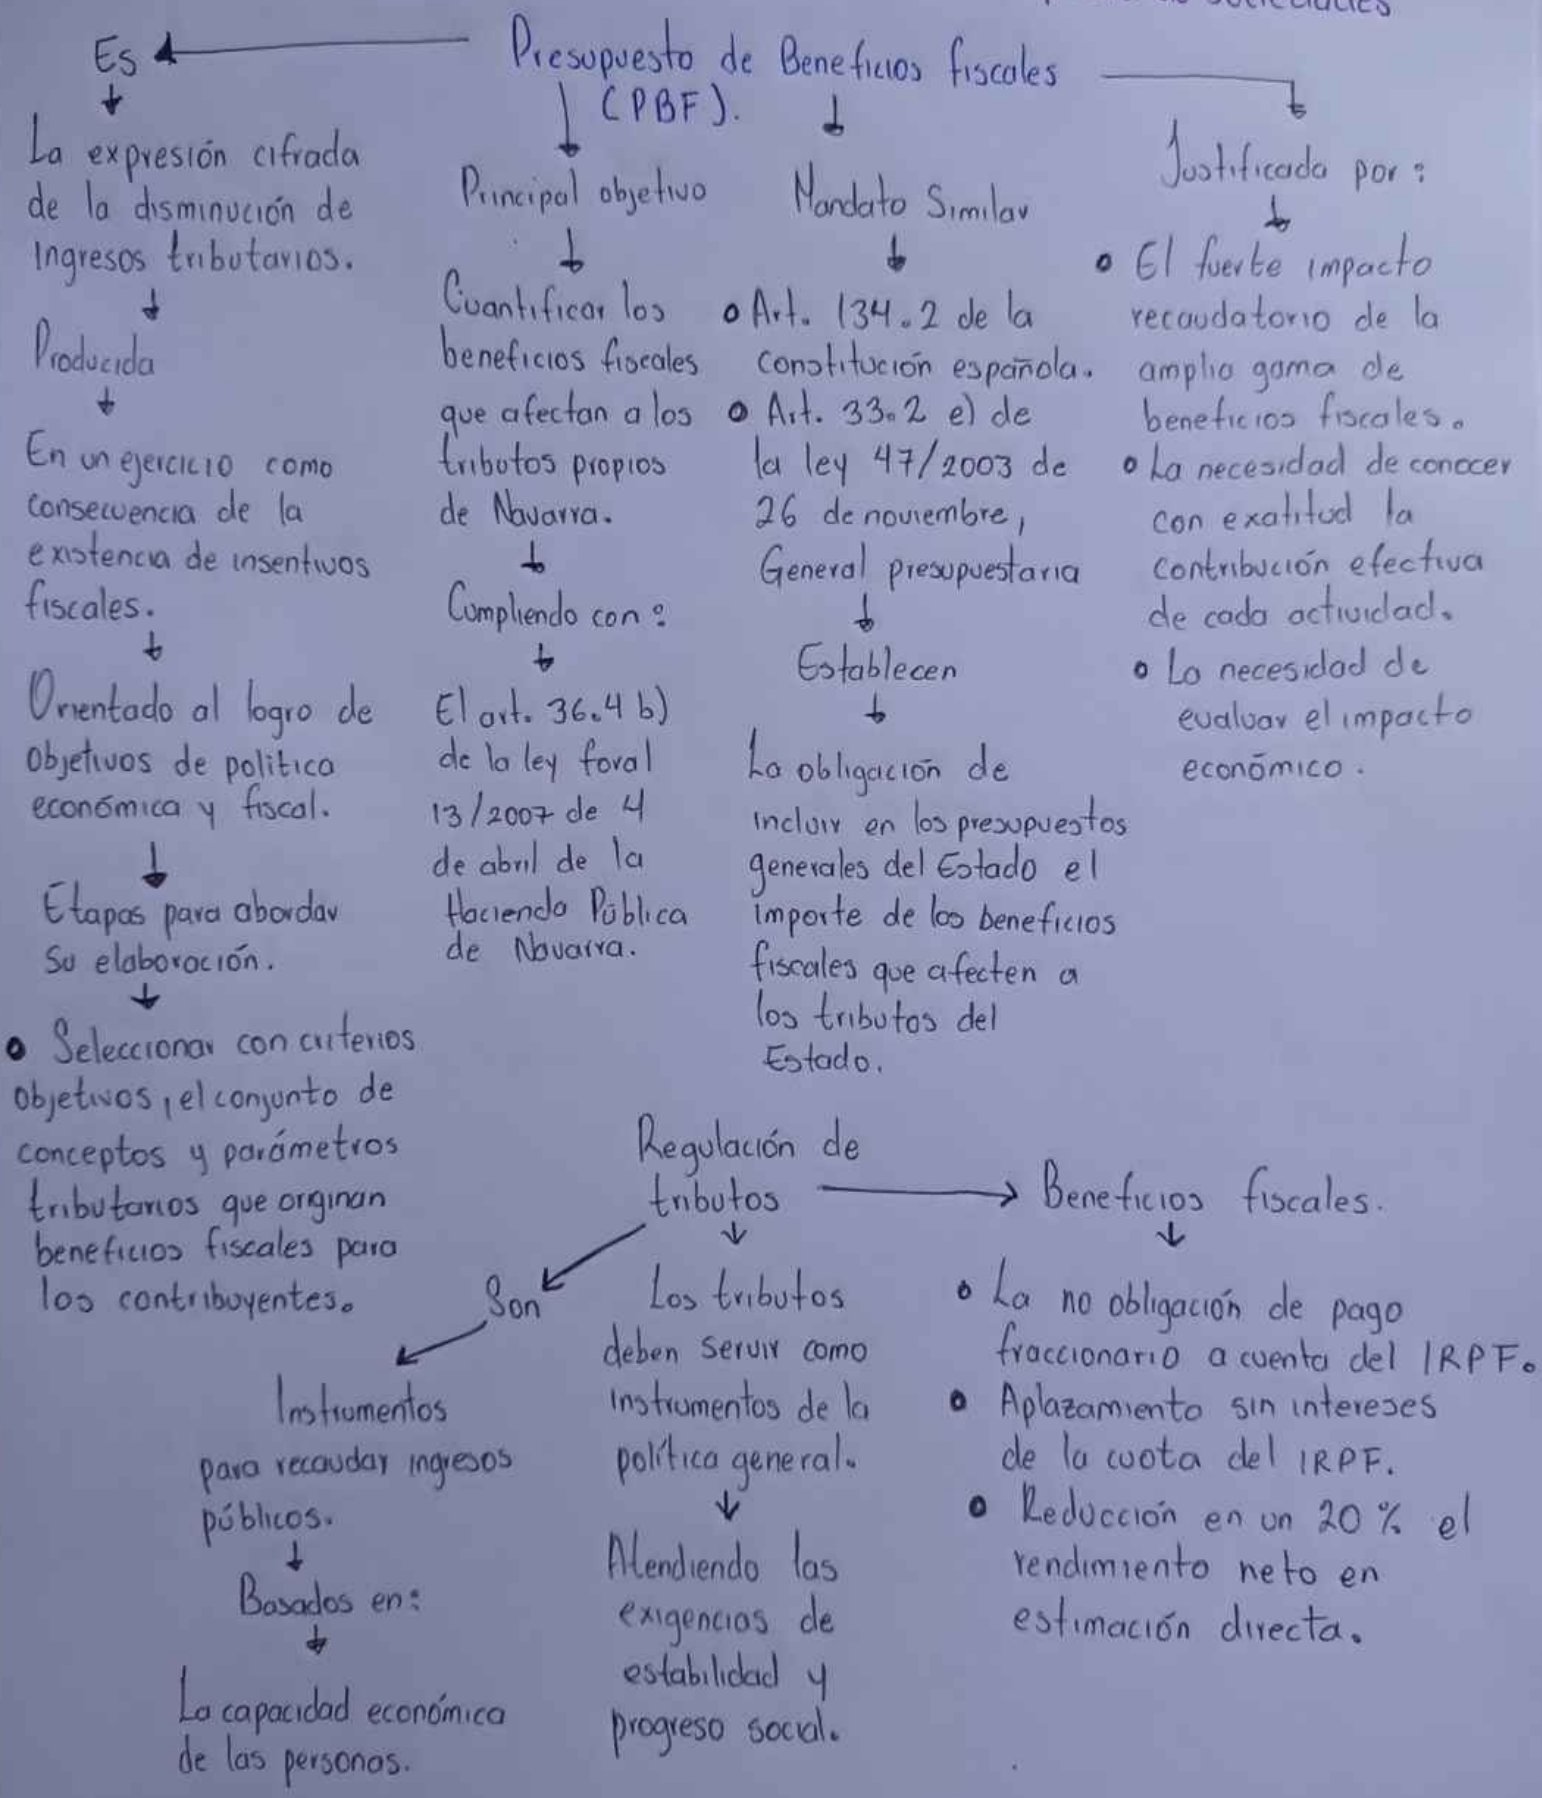 sociedades
Presupuesto de Beneficios fiscales
(PBF).
Es
La expresión cifrada
de la disminución de
Ingresos tributarios.
Producida
En un ejercicio como
consecuencia de la
existencia de insentivos
fiscales.
Orientado al logro de
objetivos de politica
económica y fiscal.
Etapas para abordar
su elaboración.
• Seleccionar con criterios
objetivos, el conjunto de
conceptos y parámetros
tributarios que originan
beneficios fiscales para
los contribuyentes.
Principal objetivo
Cuantificar los
beneficios fiscales
que afectan a los
tributos propios
de Navarra.
Cumpliendo con:
El art. 36.4 b)
de la ley foral
13/2007 de 4
de abril de la
Hacienda Pública
de Navarra.
Mandato Similar
• Art. 134.2 de la
constitución española.
• Art. 33.2 e) de
la ley 47/2003 de
26 de noviembre,
General presupuestaria
Establecen
La obligación de
incluir en los presupuestos
generales del Estado el
importe de los beneficios
fiscales que afecten a
los tributos del
Estado.
Justificada por:
• El fuerte impacto
recaudatorio de la
amplia gama de
beneficios fiscales.
• La necesidad de conocer
con exatitud la
contribución efectiva
de cada actividad.
• La necesidad de
evaluar el impacto
económico.
Regulación de
tributos
Son
Instrumentos
para recaudar ingresos
públicos.
Basados en:
La capacidad económica
de las personas.
Los tributos
deben servir como
instrumentos de la
política general.
Atendiendo las
exigencias de
estabilidad y
progreso social.
Beneficios fiscales.
• La no obligación de pago
fraccionario a cuenta del IRPF.
• Aplazamiento sin intereses
de la cuota del IRPF.
• Reducción en un 20 % el
rendimiento neto en
estimación directa.